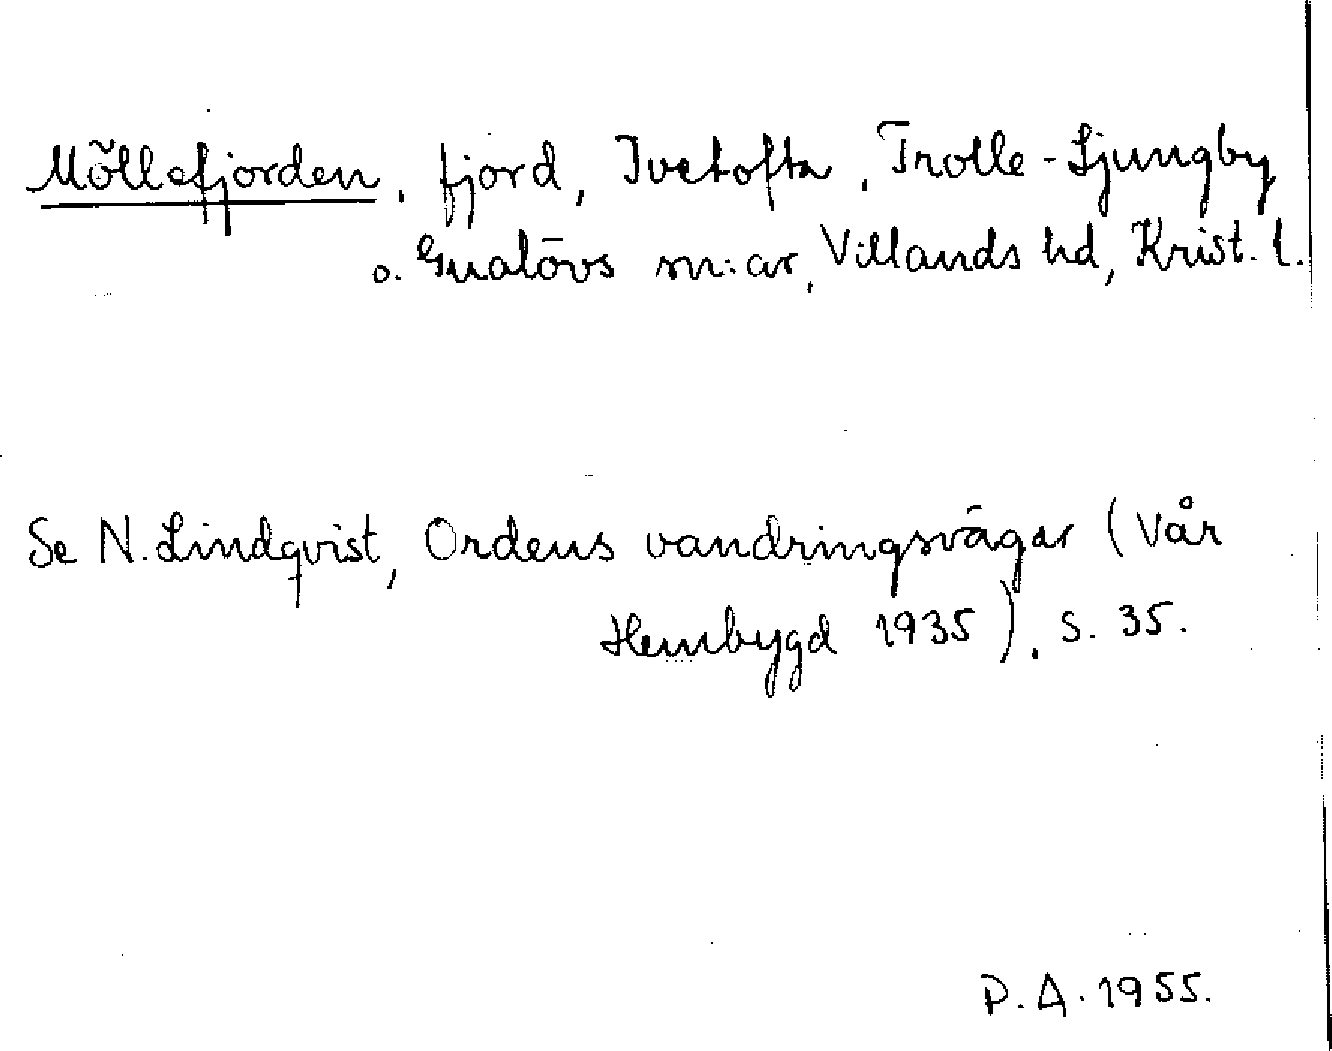 Möllefjorden, fjord, Ivetofta, Trolle-Ljungby
o. Gualövs sn:ar, Villands hd, Krist. l.
Se N. Lindqvist, Ordens vandringsvägar (Vår
Hembygd 1935), s. 35.
P.A. 1955.